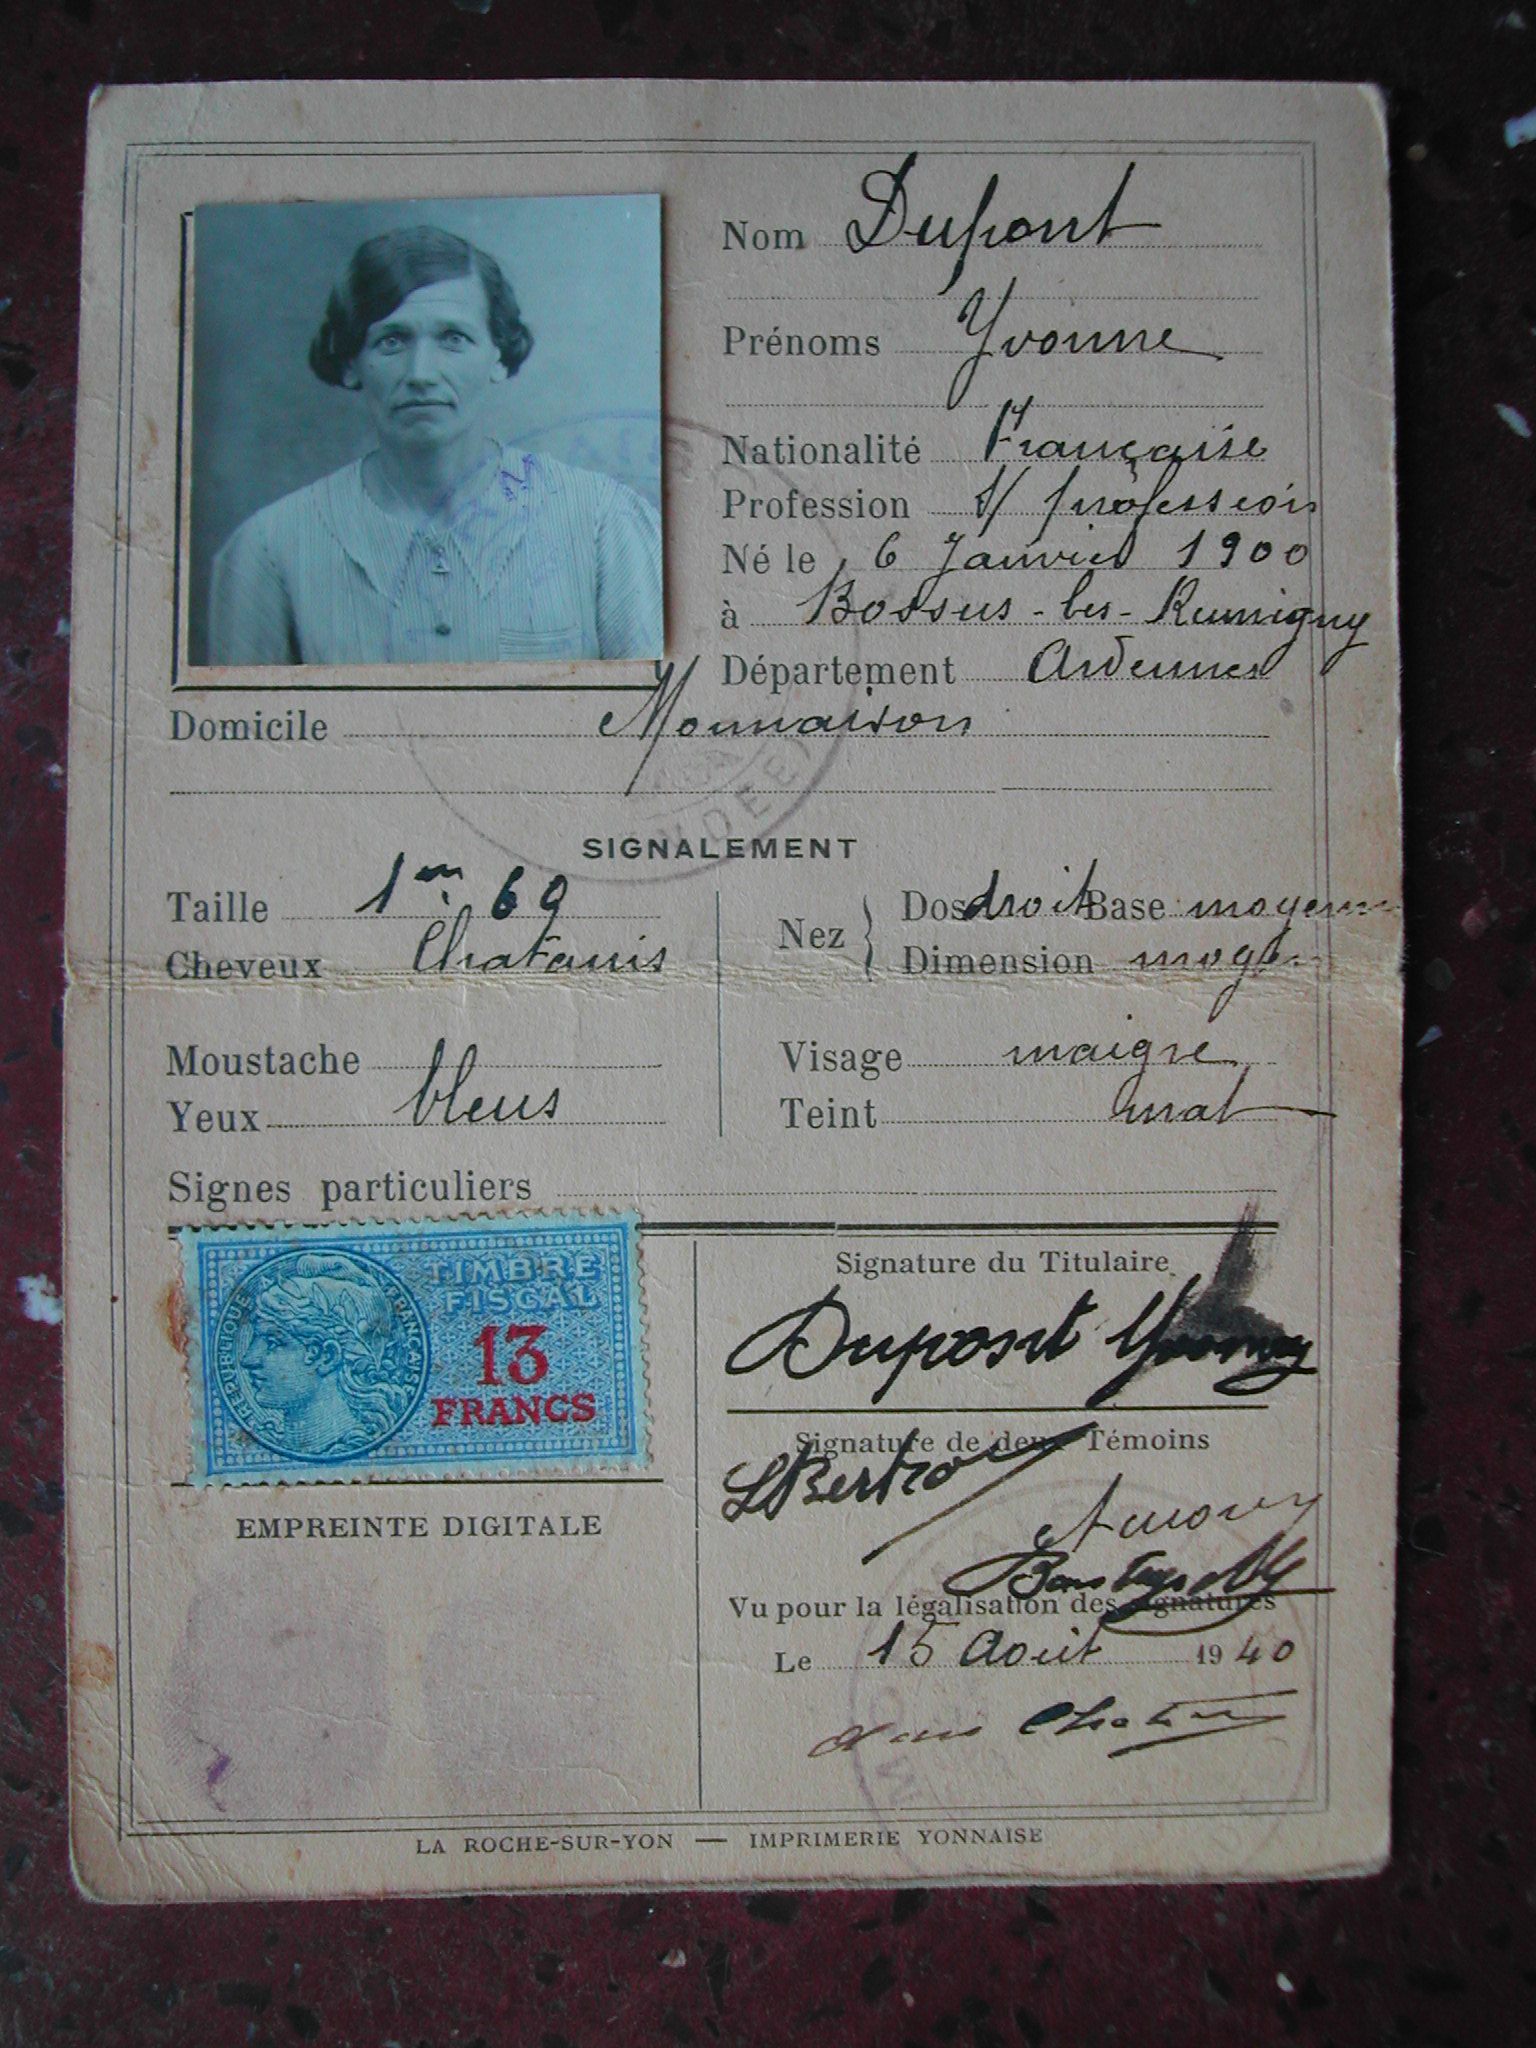 Nom Dupont
Prénoms Yvonne
Nationalité Française
Profession s/ profession
Né le 6 Janvier 1900
à Bossus-les-Rumigny
Département Ardennes
Domicile Monnaison
SIGNALEMENT
Taille 1m 69
Cheveux Chatains
Nez } Dos droit Base moyenne
Dimension moyen
Moustache
Yeux bleus
Visage maigre
Teint mat
Signes particuliers
RÉPUBLIQUE FRANÇAISE
TIMBRE
FISCAL
13
FRANCS
EMPREINTE DIGITALE
Signature du Titulaire
Dupont Yvonne
Signature de deux Témoins
Vu pour la légalisation des signatures
Le 15 Août 1940
LA ROCHE-SUR-YON — IMPRIMERIE YONNAISE